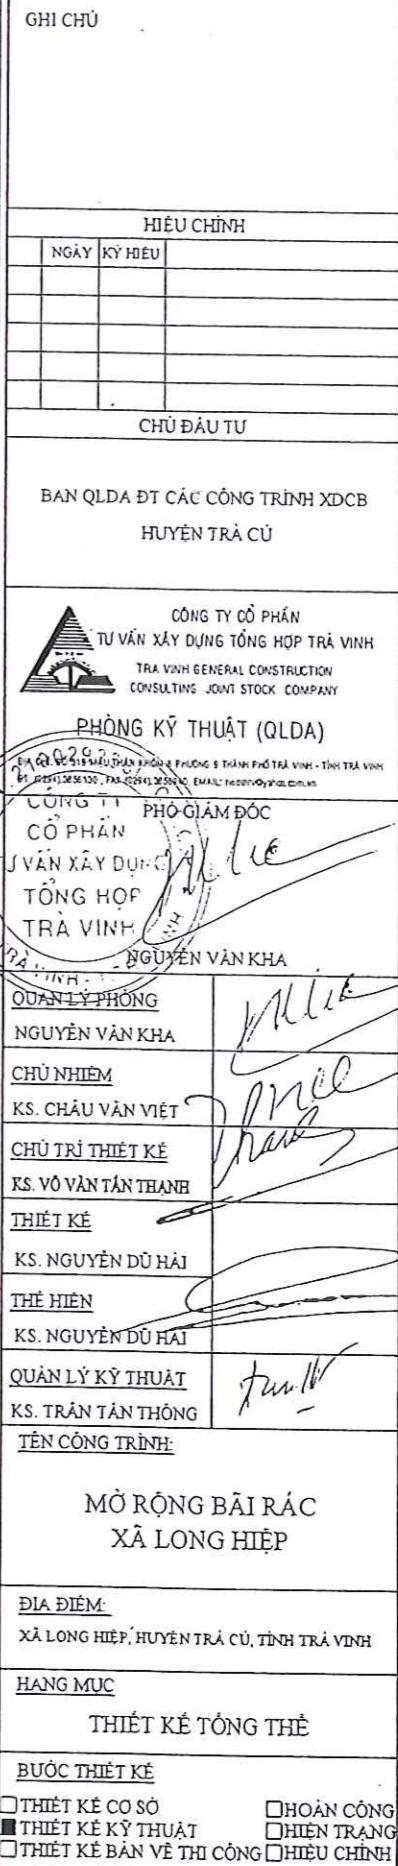 GHI CHÚ
HIỆU CHỈNH
NGÀY KÝ HIỆU
CHỦ ĐẦU TƯ
BAN QLDA ĐT CÁC CÔNG TRÌNH XDCB
HUYỆN TRÀ CÚ
CÔNG TY CỔ PHẦN
TƯ VẤN XÂY DỰNG TỔNG HỢP TRÀ VINH
TRA VINH GENERAL CONSTRUCTION
CONSULTING JOINT STOCK COMPANY
PHÒNG KỸ THUẬT (QLDA)
PHÓ GIÁM ĐỐC
CÔNG TY
CỔ PHẦN
TƯ VẤN XÂY DỰNG
TỔNG HỢP
TRÀ VINH
NGUYỄN VĂN KHA
QUẢN LÝ PHÒNG
NGUYỄN VĂN KHA
CHỦ NHIỆM
KS. CHÂU VĂN VIỆT
CHỦ TRÌ THIẾT KẾ
KS. VÕ VĂN TẤN THẠNH
THIẾT KẾ
KS. NGUYỄN DŨ HẢI
THỂ HIỆN
KS. NGUYỄN DŨ HẢI
QUẢN LÝ KỸ THUẬT
KS. TRẦN TẤN THÔNG
TÊN CÔNG TRÌNH:
MỞ RỘNG BÃI RÁC
XÃ LONG HIỆP
ĐỊA ĐIỂM:
XÃ LONG HIỆP, HUYỆN TRÀ CÚ, TỈNH TRÀ VINH
HẠNG MỤC
THIẾT KẾ TỔNG THỂ
BƯỚC THIẾT KẾ
☐THIẾT KẾ CƠ SỞ ☐HOÀN CÔNG
■THIẾT KẾ KỸ THUẬT ☐HIỆN TRẠNG
☐THIẾT KẾ BẢN VẼ THI CÔNG ☐HIỆU CHỈNH